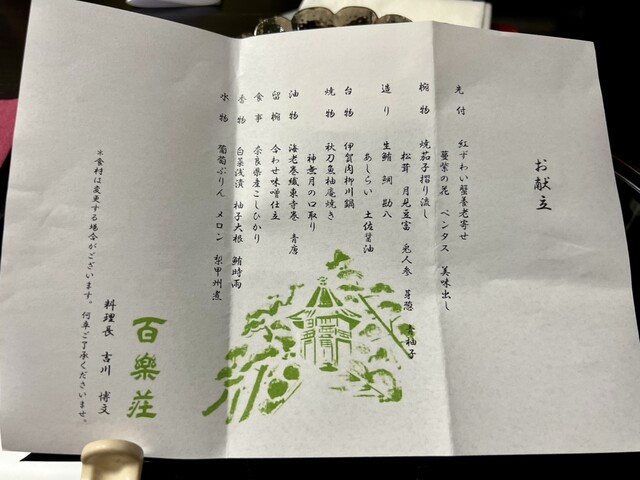 お献立
先付 紅ずわい蟹養老寄せ
蔓紫の花 ペンタス 美味出し
椀物 焼茄子摺り流し
松茸 月見豆富 兎人参 芽葱 青柚子
造り 生鮪 鯛 勘八
あしらい 土佐醤油
台物 伊賀肉柳川鍋
焼物 秋刀魚柚庵焼き
神無月の口取り
油物 海老巻繊東寺巻 青唐
留椀 合わせ味噌仕立
食事 奈良県産こしひかり
香物 白菜浅漬 柚子大根 鮪時雨
水物 葡萄ぷりん メロン 梨甲州煮
料理長 吉川 博文
*食材は変更する場合がございます。何卒ご了承くださいませ。
百樂荘